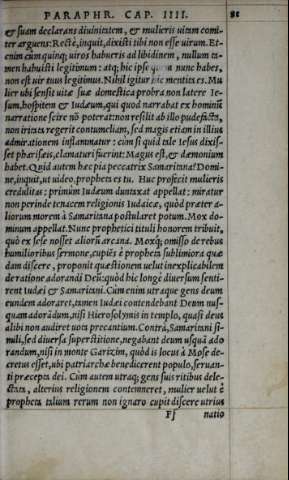 PARAPHR. CAP. IIII. 81
& suam declarans diuinitatem, & mulieris uitam comi-
ter arguens: Rectè, inquit, dixisti tibi non esse uirum. Et-
enim cum quinq; uiros habueris ad libidinem, nullum ta-
men habuisti legitimum: atq; hic ipse quem nunc habes,
non est uir tuus legitimus. Nihil igitur hic mentita es. Mu
lier ubi sensit uitæ suæ domestica probra non latere Ie-
sum, hospitem & Iudæum, qui quod narrabat ex hominũ
narratione scire nõ poterat: non resilit ab illo pudefacta,
non irritata regerit contumeliam, sed magis etiam in illius
admirationem inflammatur: cùm si quid tale Iesus dixis-
set pharisæis, clamaturi fuerint: Magus est, & dæmonium
habet. Quid autem hæc pia peccatrix Samaritana? Domi-
ne, inquit, ut uideo, propheta es tu. Huc profecit mulieris
credulitas: primùm Iudæum duntaxat appellat: miratur
non perinde tenacem religionis Iudaicæ, quòd præter a-
liorum morem à Samaritana postularet potum. Mox do-
minum appellat. Nunc prophetici tituli honorem tribuit,
quò ex sese nosset aliorũ arcana. Moxq; omisso de rebus
humilioribus sermone, cupiẽs è propheta sublimiora quæ
dam discere, proponit quæstionem uelut inexplicabilem
de ratione adorandi Dei: quòd hic longè diuersum senti-
rent Iudæi & Samaritani. Cùm enim utraque gens deum
eundem adoraret, tamen Iudæi contendebant Deum nus-
quam adorãdum, nisi Hierosolymis in templo, quasi deus
alibi non audiret uota precantium. Contrà, Samaritani si-
mili, sed diuersa superstitione, negabant deum usquã ado
randum, nisi in monte Garizim, quòd is locus à Mose de-
cretus esset, ubi patriarchæ benedicerent populo, seruan-
ti præcepta dei. Cùm autem utraq; gens suis ritibus dele-
ctata, alterius religionem contemneret, mulier uelut è
propheta talium rerum non ignaro cupit discere utrius
Ff natio